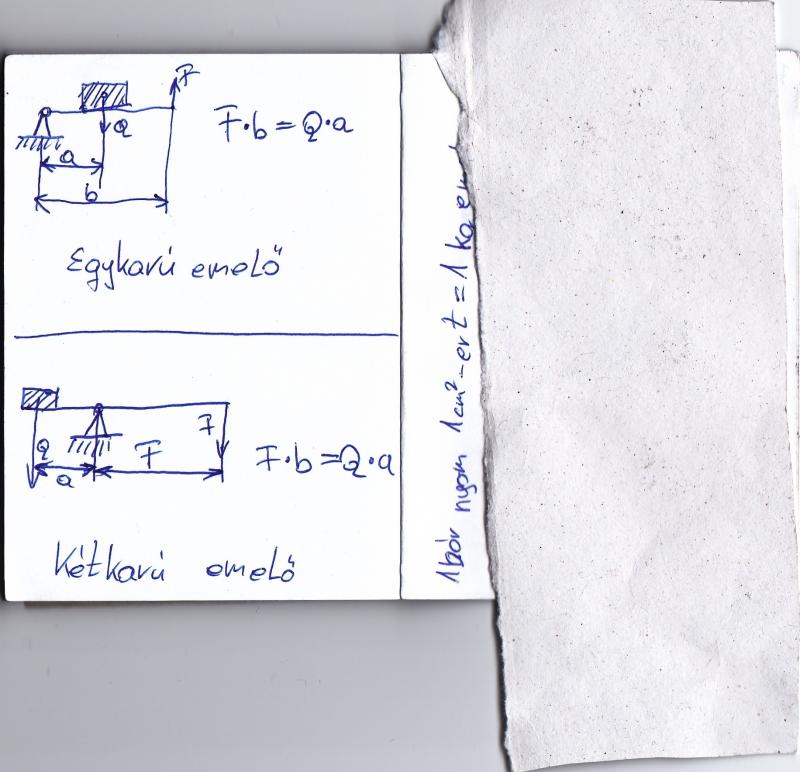 F
Q
a
b
F·b=Q·a
Egykarú emelő
Q
a
F
F
F·b=Q·a
Kétkarú emelő
1 bár nyom 1cm²-ert = 1 kg